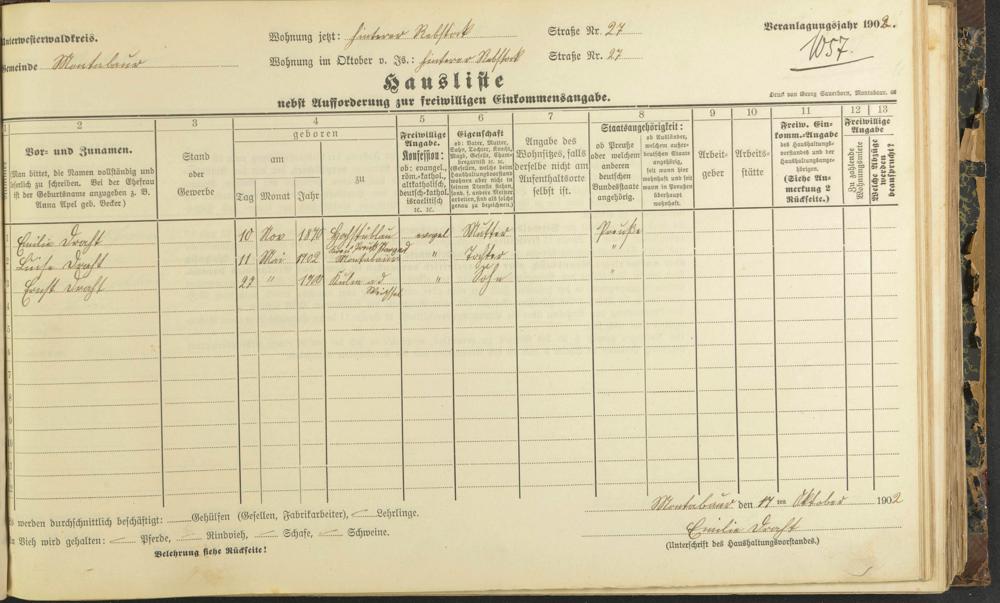 Unterwesterwaldkreis.
Gemeinde Montabaur
Wohnung jetzt: hinterer Rebstock Straße Nr. 27
Wohnung im Oktober v. Js.: hinterer Rebstock Straße Nr. 27
Veranlagungsjahr 1902.
1057.
Hausliste
nebst Aufforderung zur freiwilligen Einkommensangabe.
Druck von Georg Sauerborn, Montabaur.
2 3 4 5 6 7 8 9 10 11 12 13
Vor- und Zunamen.
Man bittet, die Namen vollständig und
leserlich zu schreiben. Bei der Ehefrau
ist der Geburtsname anzugeben z. B.
Anna Apel geb. Becker)
Stand
oder
Gewerbe
geboren
am
zu
Tag Monat Jahr
Freiwillige
Angabe.
Konfession:
ob: evangel.,
röm.-kathol.,
altkatholisch,
deutsch-kathol.
israelitisch
ic. ic.
Eigenschaft
ob: Vater, Mutter,
Sohn, Tochter, Knecht,
Magd, Geselle,
Angabe des
Wohnsitzes, falls
derselbe nicht am
Aufenthaltsorte
selbst ist.
Staatsangehörigkeit:
ob Preuße
oder welchem
anderen
deutschen
Bundesstaate
angehörig.
ob Ausländer,
welchem außer-
deutschen Staate
angehörig,
seit wann hier
wohnhaft und seit
wann in Preußen
überhaupt
wohnhaft.
Arbeit-
geber
Arbeits-
stätte
Freiw. Ein-
komm.-Angabe
des Haushaltungs-
vorstandes und der
Haushaltungsange-
hörigen.
(Siehe An-
merkung 2
Rückseite.)
Freiwillige
Angabe
Zu zahlende
Wohnungsmiete
Welche Abzüge
werden
beansprucht?
Emilie Drast 10 Nov 1870 evngel Mutter Preuße
Luise Drast 11 Mai 1902 Montabaur " Tochter "
Ernst Drast 22 " 1900 Kulm a d Weichsel " Sohn "
werden durchschnittlich beschäftigt: Gehülfen (Gesellen, Fabrikarbeiter), Lehrlinge.
Vieh wird gehalten: Pferde, Rindvieh, Schafe, Schweine.
Belehrung siehe Rückseite!
Montabaur den 17 ten Oktober 1902
Emilie Drast
(Unterschrift des Haushaltungsvorstandes.)